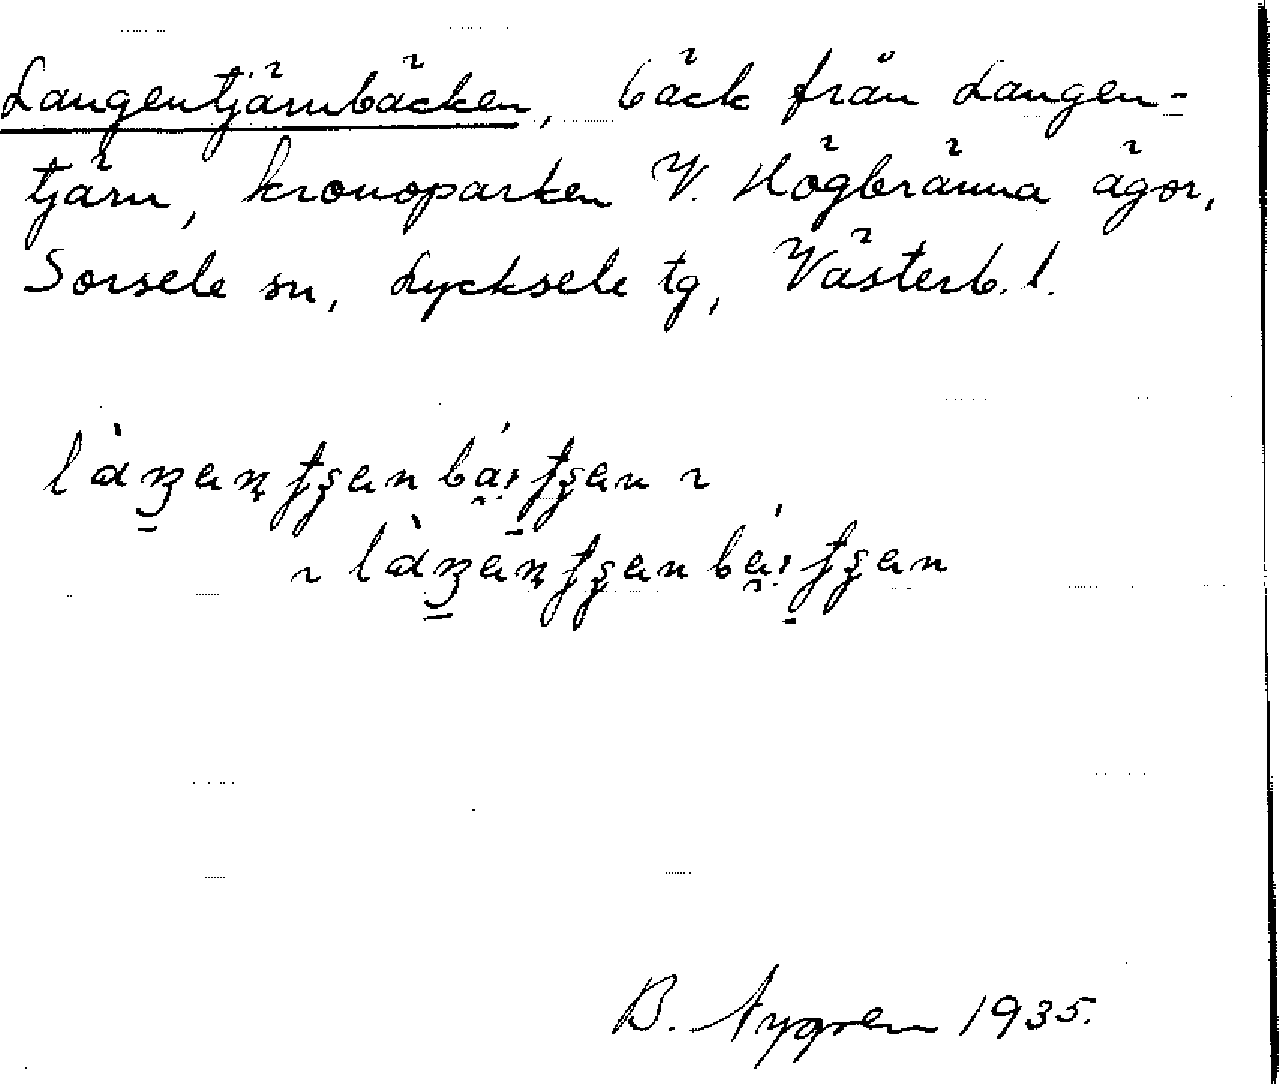 Langentjärnbäcken, bäck från Langen-
tjärn, kronoparken V. Högbränna ägor,
Sorsele sn, Lycksele tg, Västerb. l.
B. Nygren 1935.